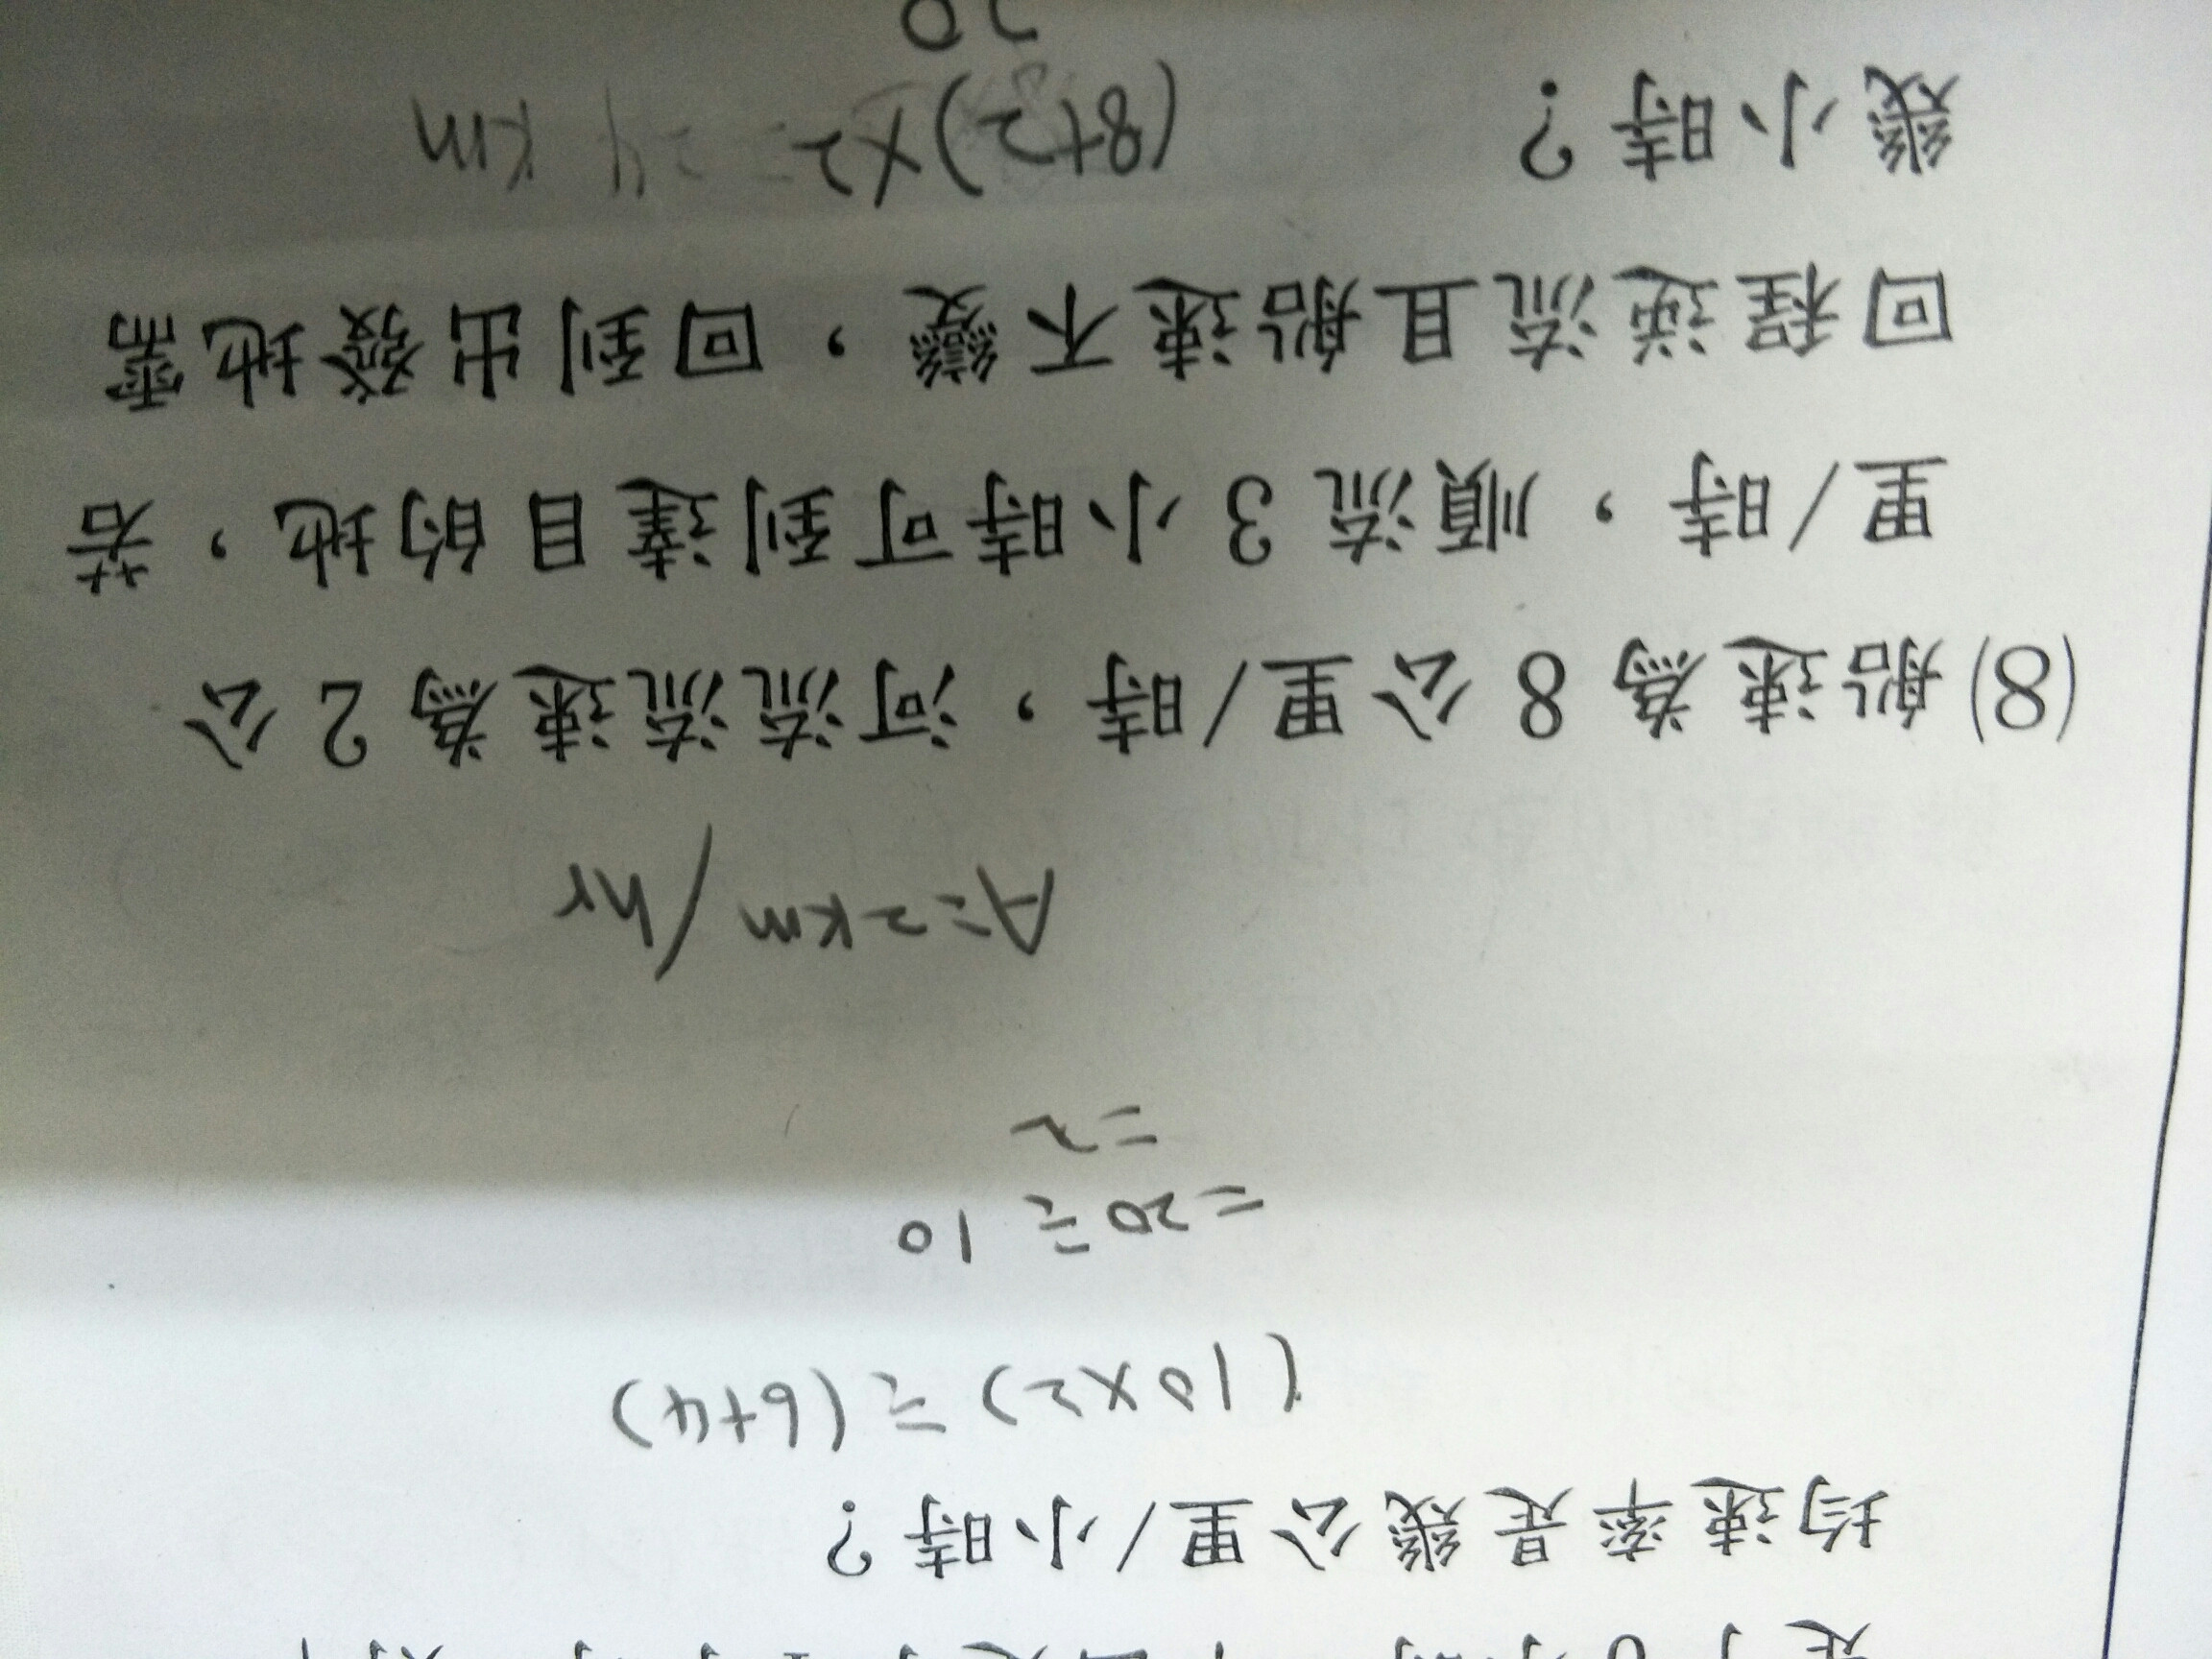 均速率是幾公里/小時？
(10×2)÷(6+4)
=20÷10
=2
A:2km/hr
(8)船速為 8 公里/時，河流流速為 2 公
里/時，順流 3 小時可到達目的地，若
回程逆流且船速不變，回到出發地需
幾小時？
(8+2)×2 = 24 km
20